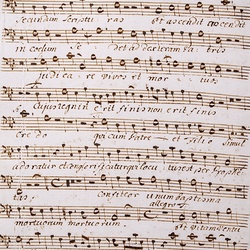 secundum scriptu ras et ascendit in
in coelum se det ad dexteram pa tris
judica re vivos et mor tuos
Cujus regni e rit finis non erit finis
cre do qui cum Patre et Filio simul
adoratur et qui locu tus per
tas, Confiteor unum baptisma
allegro
mortuorum mortuorum. et vitam